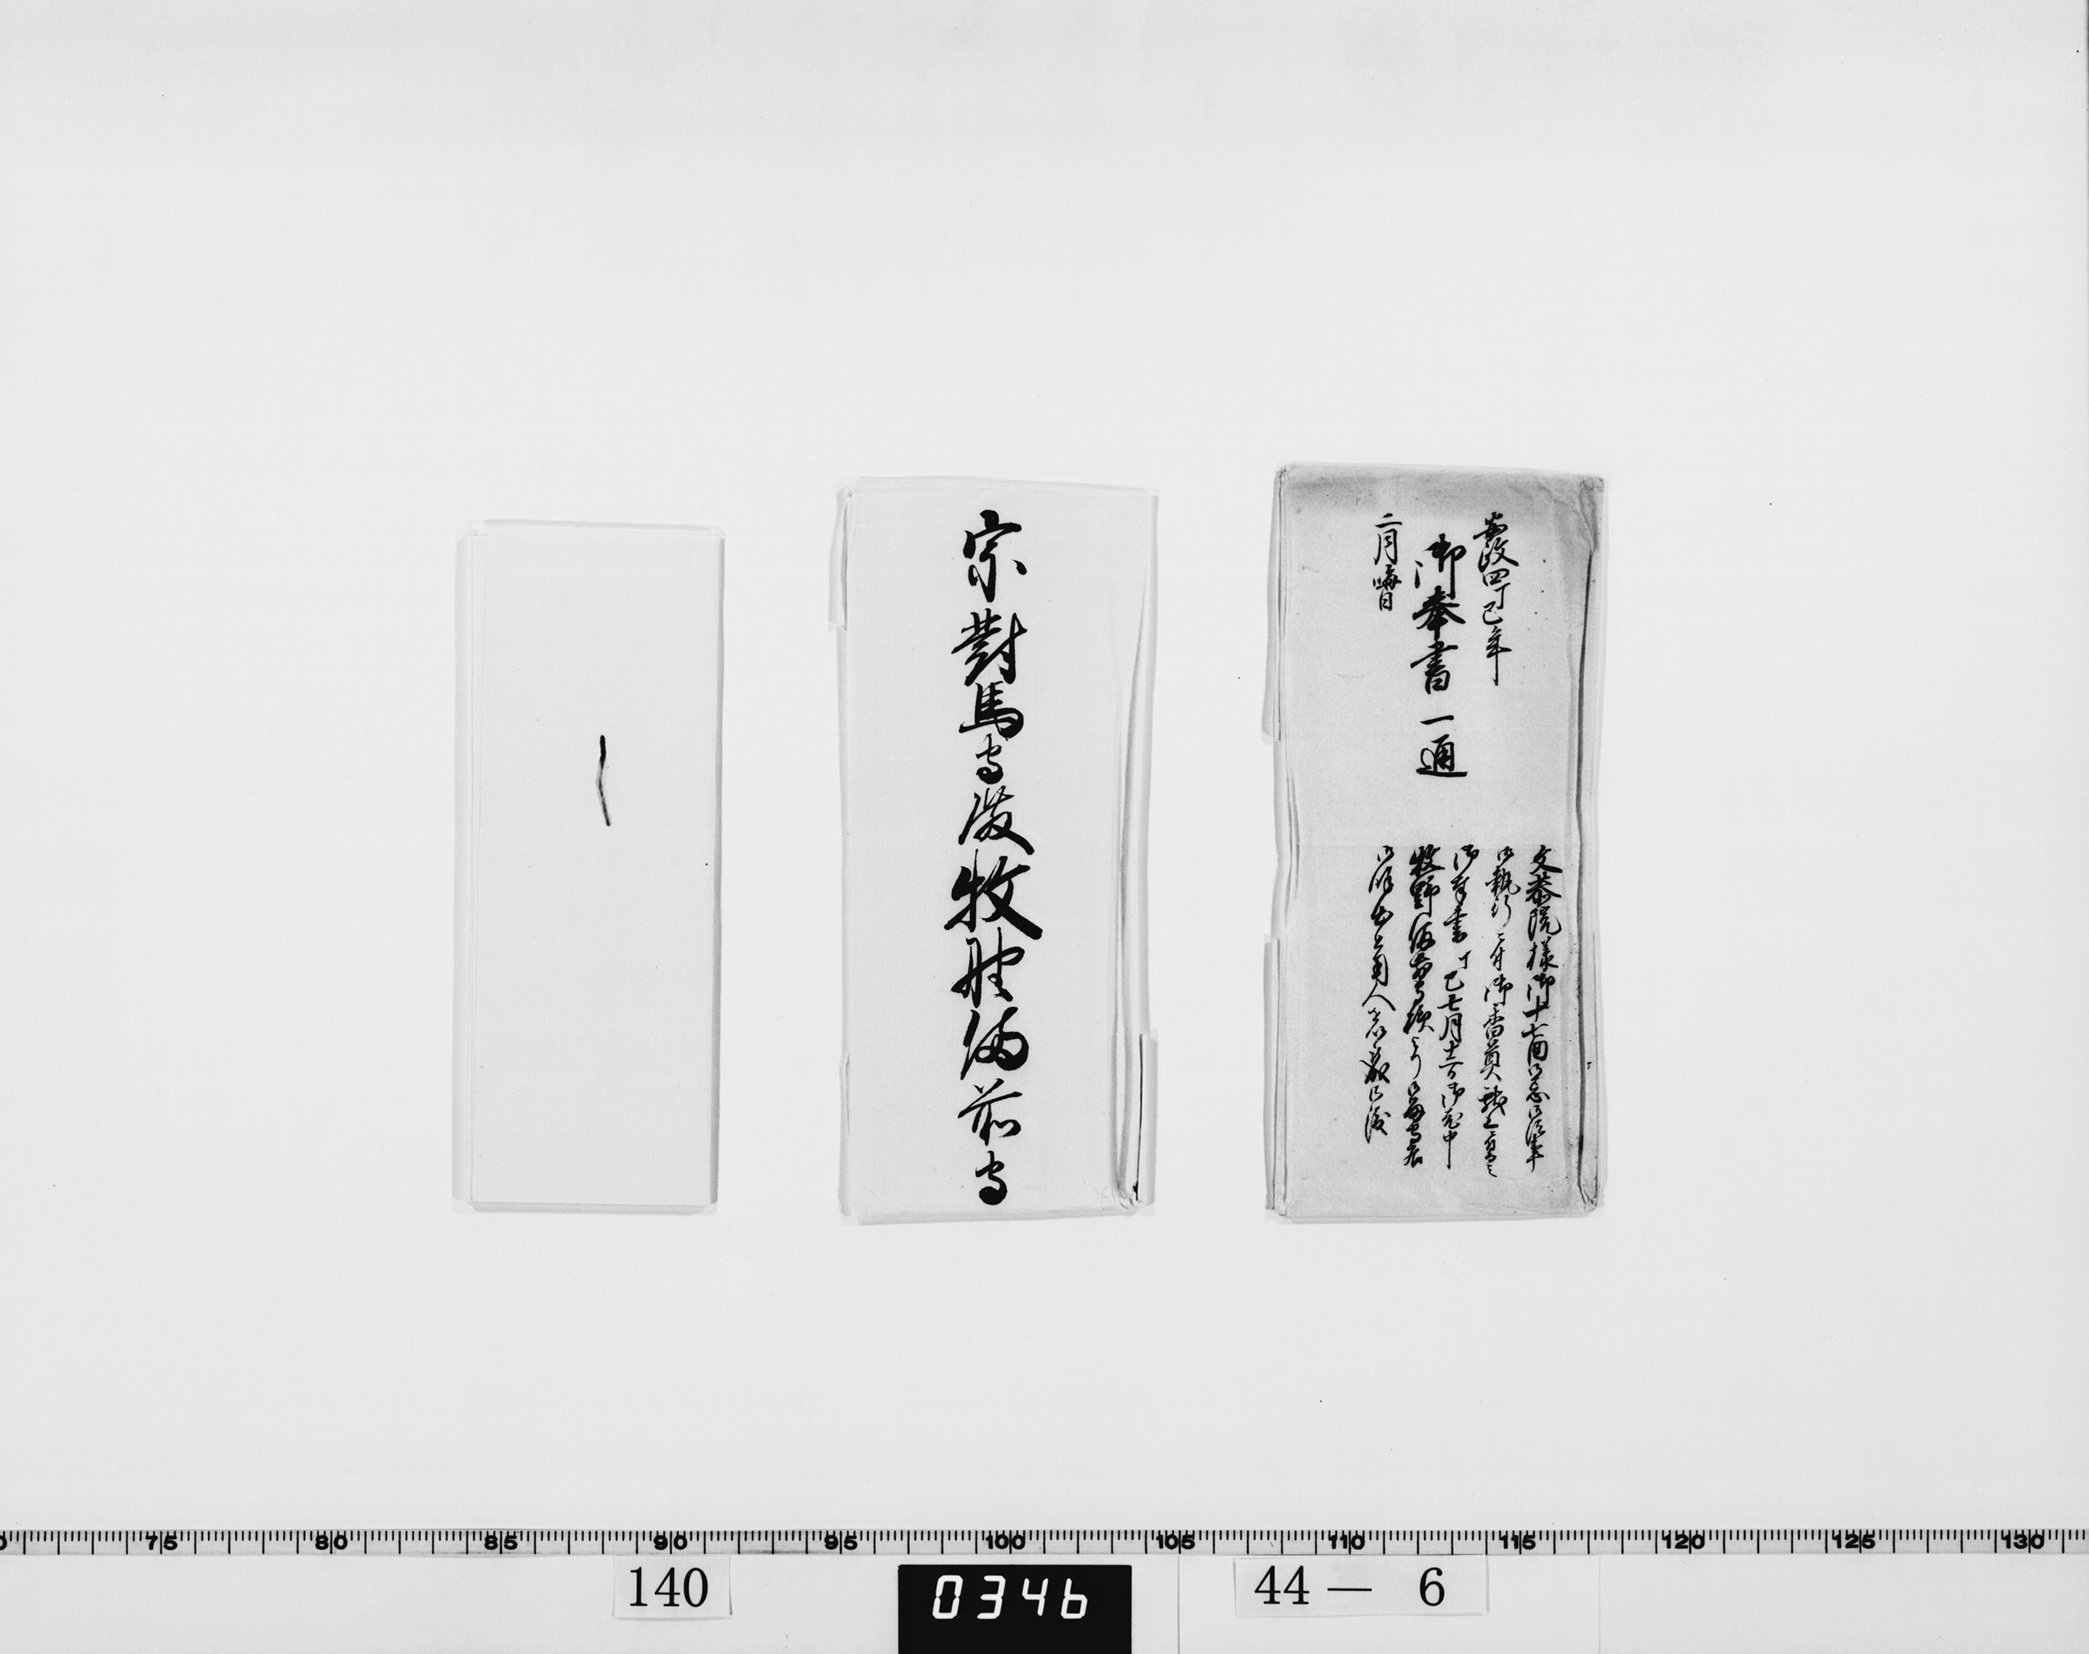 安政四丁巳年
御奉書一通
二月晦日
文恭院様御十七回御忌御法事
御執行ニ付御香奠献上
御奉書丁巳七月十一日御老中
牧野備前守様より
宗對馬守殿牧野備前守
75 80 85 90 95 100 105 110 115 120 125 130
140
0346
44— 6